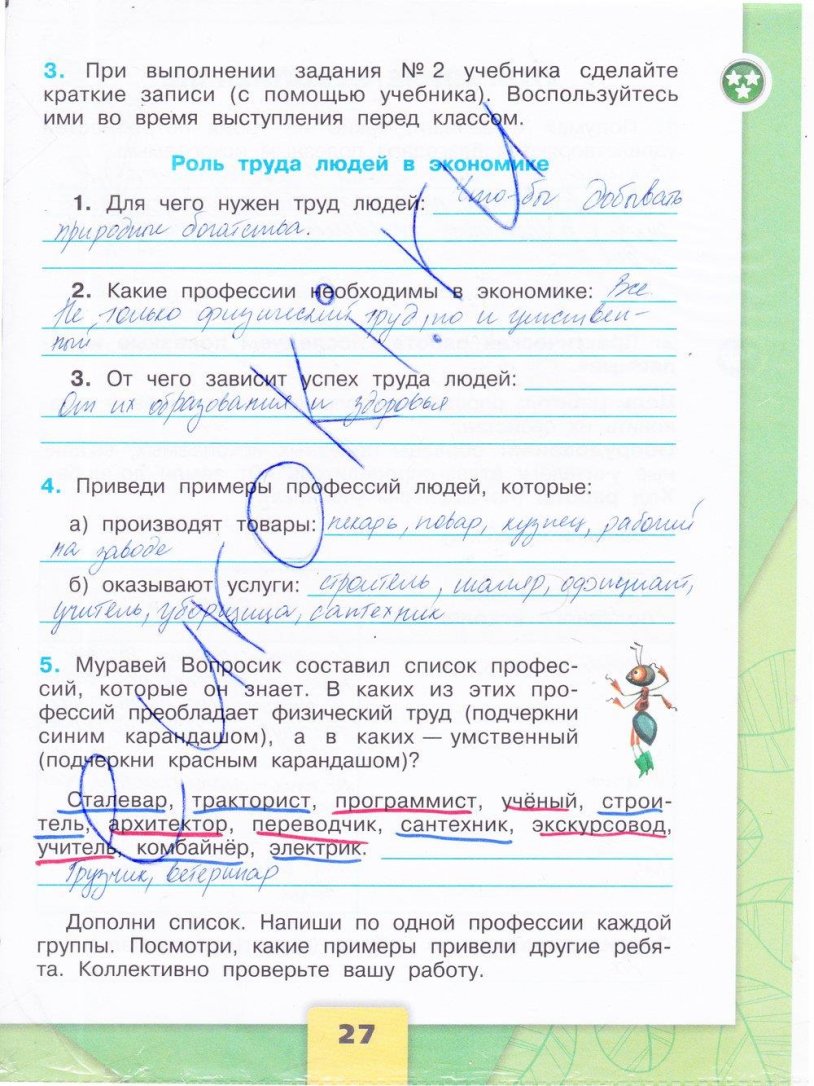 3. При выполнении задания № 2 учебника сделайте
краткие записи (с помощью учебника). Воспользуйтесь
ими во время выступления перед классом.
Роль труда людей в экономике
1. Для чего нужен труд людей: Что-бы добывать
природные богатства.
2. Какие профессии необходимы в экономике: Все
Не только физический труд, но и умствен-
ный
3. От чего зависит успех труда людей:
От их образования и здоровья
4. Приведи примеры профессий людей, которые:
а) производят товары: пекарь, повар, кузнец, рабочий
на заводе
б) оказывают услуги: строитель, маляр, официант,
учитель, уборщица, сантехник
5. Муравей Вопросик составил список профес-
сий, которые он знает. В каких из этих про-
фессий преобладает физический труд (подчеркни
синим карандашом), а в каких — умственный
(подчеркни красным карандашом)?
Сталевар, тракторист, программист, учёный, строи-
тель, архитектор, переводчик, сантехник, экскурсовод,
учитель, комбайнёр, электрик.
Грузчик, ветеринар
Дополни список. Напиши по одной профессии каждой
группы. Посмотри, какие примеры привели другие ребя-
та. Коллективно проверьте вашу работу.
27
e-uroki.ru